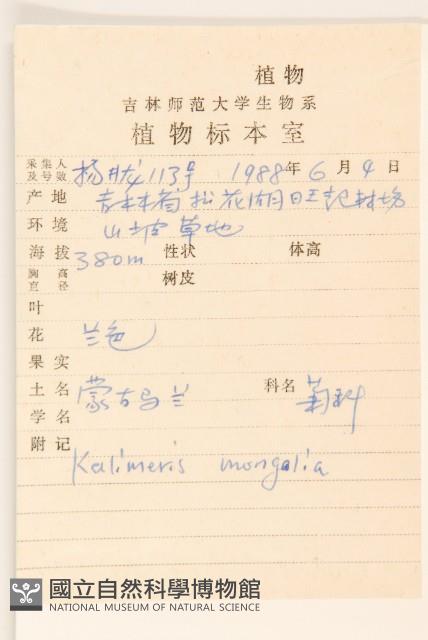 植物
吉林师范大学生物系
植物标本室
采集人及号数 杨胧113号 1988年6月4日
产地 吉林省松花湖旺起林场
环境 山坡草地
海拔 380m 性状 体高
胸高直径 树皮
叶
花 兰色
果实
土名 蒙古马兰 科名 菊科
学名
附记
Kalimeris mongolia
國立自然科學博物館
NATIONAL MUSEUM OF NATURAL SCIENCE